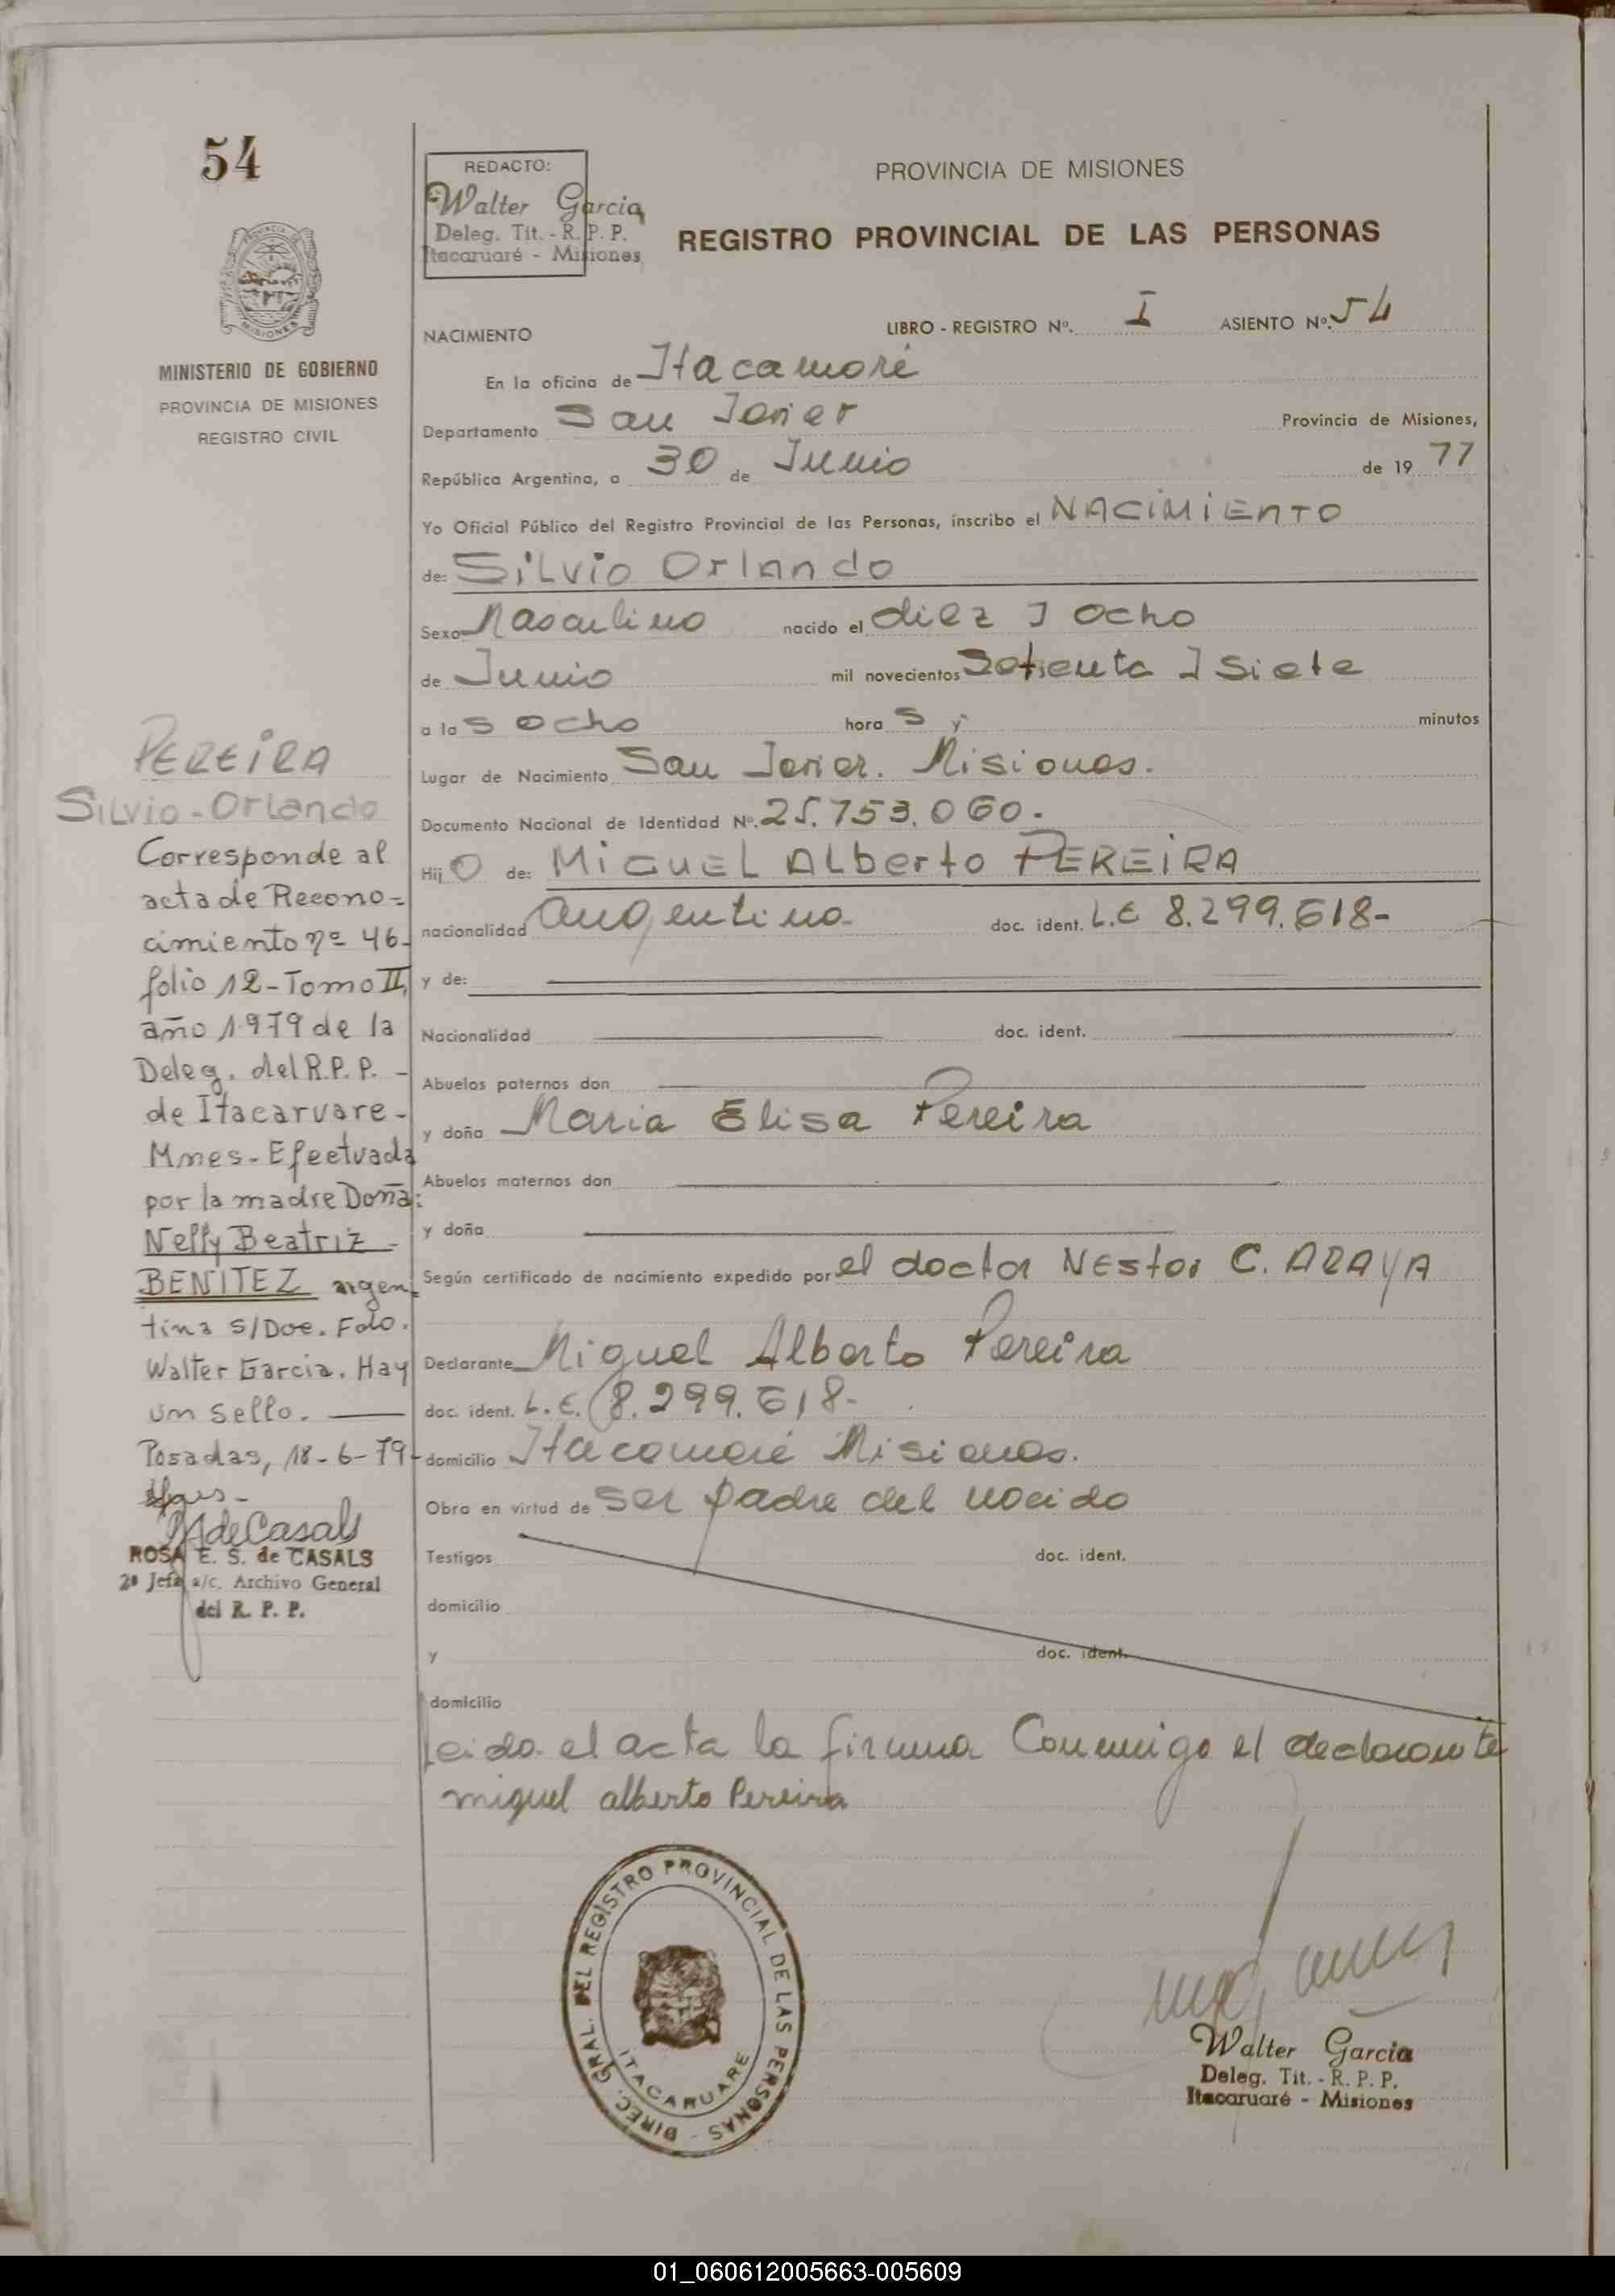 54
REDACTO:
Walter Garcia
Deleg. Tit. - R. P. P.
Itacaruaré - Misiones
PROVINCIA DE MISIONES
REGISTRO PROVINCIAL DE LAS PERSONAS
PROVINCIA DE MISIONES
MINISTERIO DE GOBIERNO
PROVINCIA DE MISIONES
REGISTRO CIVIL
NACIMIENTO LIBRO - REGISTRO Nº. I ASIENTO Nº. 54
En la oficina de Itacaruaré
Departamento San Javier Provincia de Misiones,
República Argentina, a 30 de Junio de 19 77
Yo Oficial Público del Registro Provincial de las Personas, inscribo el NACIMIENTO
de: SiLvio Orlando
Sexo Masculino nacido el diez y ocho
de Junio mil novecientos Setenta y Siete
a las ocho horas y minutos
Lugar de Nacimiento San Javier. Misiones.
Documento Nacional de Identidad Nº. 25.753.060.-
Hijo de: MiGUEL ALberto PEREiRA
nacionalidad argentino doc. ident. L.E 8.299.618-
y de:
Nacionalidad doc. ident.
Abuelos paternos don
y doña Maria Elisa Pereira
Abuelos maternos don
y doña
Según certificado de nacimiento expedido por el doctor NEstor C. ARAYA
Declarante Miguel Alberto Pereira
doc. ident. L.E. 8.299.618-
domicilio Itacaruaré Misiones.
Obra en virtud de ser padre del nacido
Testigos doc. ident.
domicilio
y doc. ident.
domicilio
Leida el acta la firma Conmigo el declarante
miguel alberto Pereira
PEREiRA
SiLvio - Orlando
Corresponde al
acta de Recono=
cimiento nº 46-
folio 12 - Tomo II,
año 1979 de la
Deleg. del R.P.P. -
de Itacaruare -
Mnes - Efectuada
por la madre Doña:
Nelly Beatriz -
BENITEZ argen-
tina s/Doc. Fdo.
Walter Garcia. Hay
un sello.
Posadas, 18-6-79-
ROSA E. S. de CASALS
2ª Jefa a/c. Archivo General
del R. P. P.
DIREC. GRAL. DEL REGISTRO PROVINCIAL DE LAS PERSONAS -
ITACARUARE
Walter Garcia
Deleg. Tit. - R. P. P.
Itacaruaré - Misiones
01_060612005663-005609